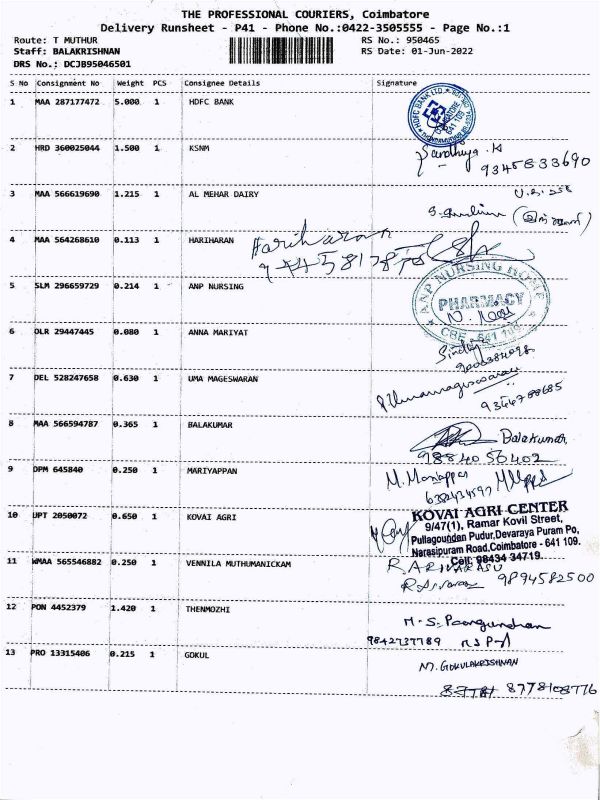 THE PROFESSIONAL COURIERS, Coimbatore
Delivery Runsheet - P41 - Phone No.:0422-3505555 - Page No.:1
Route: T MUTHUR
RS No.: 950465
Staff: BALAKRISHNAN
RS Date: 01-Jun-2022
DRS No.: DCJB95046501
S No Consignment No Weight PCS Consignee Details Signature
1 MAA 287177472 5.000 1 HDFC BANK
HDFC BANK LTD.
641 103
2 HRD 360025044 1.500 1 KSNM
Sandhiya. K
9345833690
3 MAA 566619690 1.215 1 AL MEHAR DAIRY
4 MAA 564268610 0.113 1 HARIHARAN
Hariharan
5 SLM 296659729 0.214 1 ANP NURSING
ANP NURSING HOME
PHARMACY
CBE - 641 103
6 DLR 29447445 0.080 1 ANNA MARIYAT
7 DEL 528247658 0.630 1 UMA MAGESWARAN
P. Umamageswaran
9344788685
8 MAA 566594787 0.365 1 BALAKUMAR
Balakumar
9884056402
9 DPM 645840 0.250 1 MARIYAPPAN
M. Mariappan
10 UPT 2050072 0.650 1 KOVAI AGRI
KOVAI AGRI CENTER
9/47(1), Ramar Kovil Street,
Pullagoundan Pudur, Devaraya Puram Po,
Narasipuram Road, Coimbatore - 641 109.
Cell: 98434 34719
11 WMAA 565546882 0.250 1 VENNILA MUTHUMANICKAM
R. ARIVARASU
9894582500
12 PON 4452379 1.420 1 THENMOZHI
M. S. Poongundran
9842737789
13 PRO 13315406 0.215 1 GOKUL
M. GOKULAKRISHNAN
8778108776